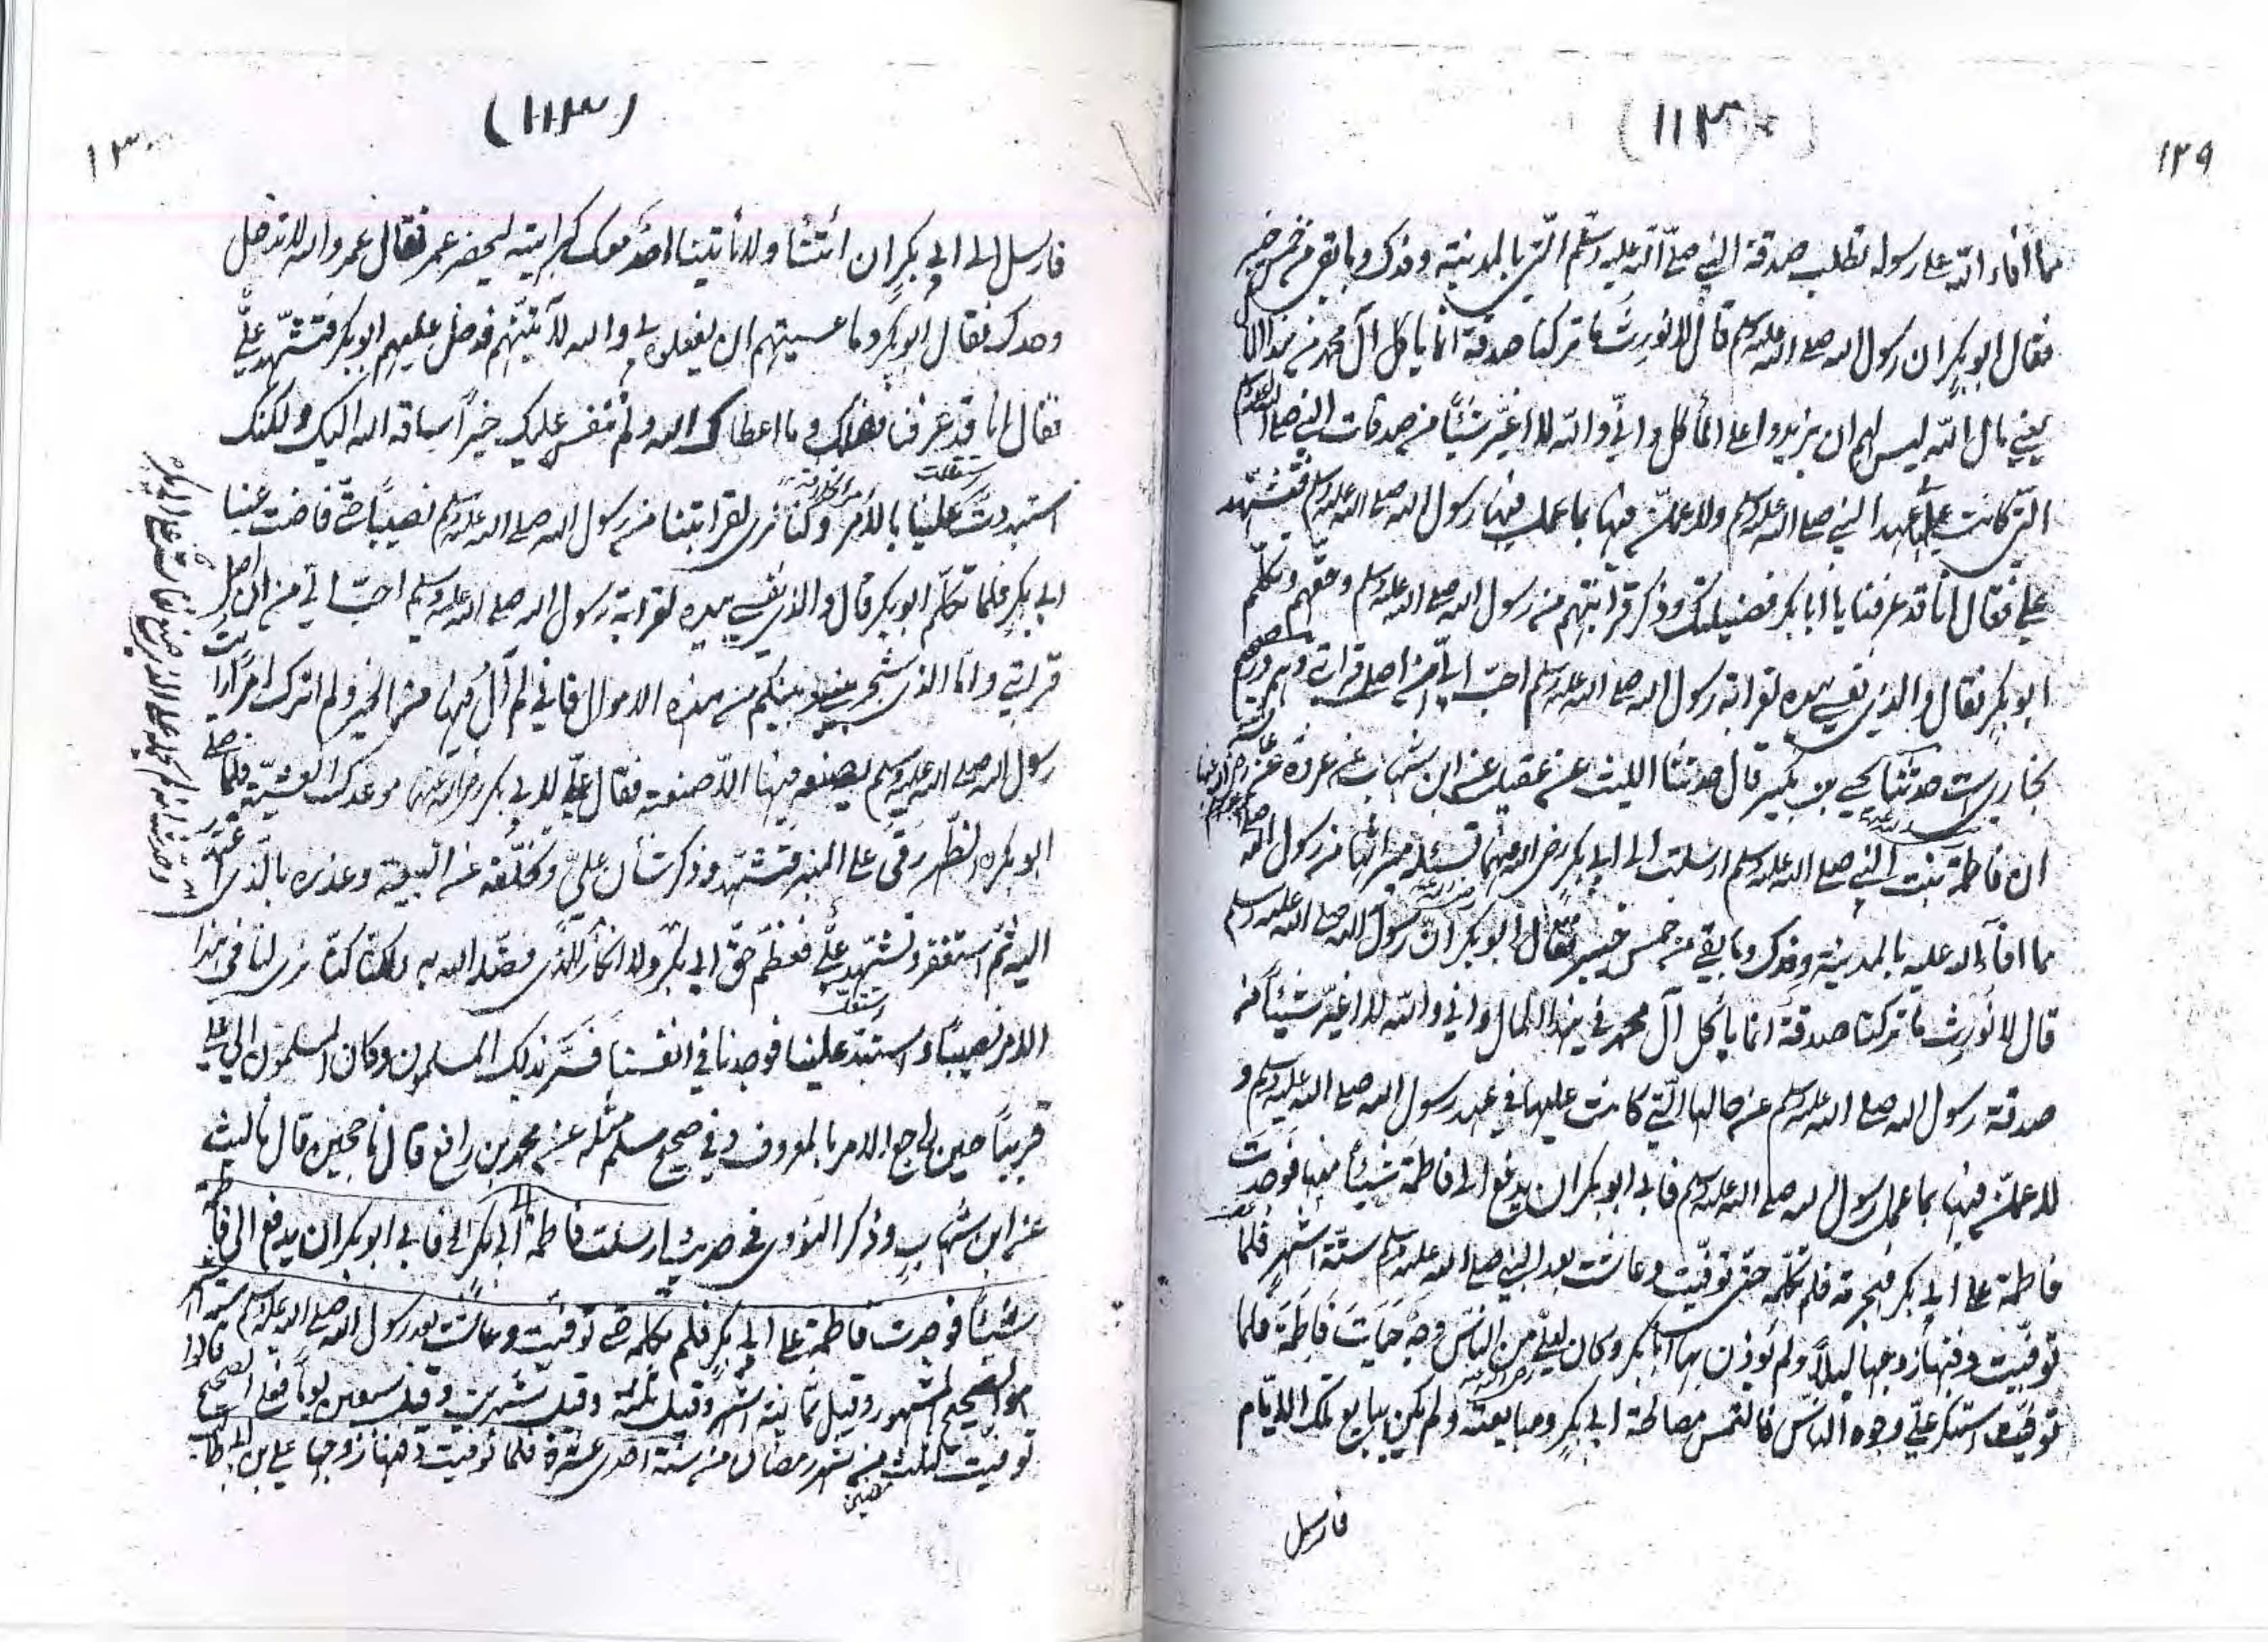 ١٢٩
(١١٣)
مما أفاء الله على رسوله تطلب صدقة النبي صلّى الله عليه وسلّم الّتي بالمدينة وفدك وما بقي من خمس خيبر
فقال ابو بكرٍ ان رسول الله صلى الله عليه وسلم قال لا نورث ما تركنا صدقة انما ياكل آل محمد من هذا المال
يعني مال الله ليس لهم ان يزيدوا على المأكل وانّي والله لا اغيّر شيئًا من صدقات النبي صلى الله عليه وسلم
الّتي كانت عليها عهد النبي صلى الله عليه وسلم ولاعملنّ فيها بما عمل فيها رسول الله صلى الله عليه وسلم فتشهد
علي فقال انا قد عرفنا يا ابا بكر فضيلتك وذكر قرابتهم من رسول الله صلى الله عليه وسلم وحقهم وتكلّم
ابو بكرٍ فقال والذي نفسي بيده لقرابة رسول الله صلى الله عليه وسلم احبّ اليّ من اصل قرابتي
حدثنا يحيى بن بكير قال حدثنا الليث عن عقيل عن ابن شهاب عن عروة عن
ان فاطمة بنت النبي صلى الله عليه وسلم ارسلت الى ابي بكر رضى الله عنهما تسئله ميراثها من رسول الله صلى الله عليه وسلم
مما افاء الله عليه بالمدينة وفدك وما بقي من خمس خيبر فقال ابو بكر انّ رسول الله صلى الله عليه وسلم
قال لا نُورِث ما تركنا صدقة انّما ياكل آل محمد في هذا المال واني والله لا اغيّر شيئاً من
صدقة رسول الله صلى الله عليه وسلم عن حالها الّتي كانت عليها في عهد رسول الله صلى الله عليه وسلم و
لاعملنّ فيها بما عمل رسول الله صلى الله عليه وسلم فابى ابو بكر ان يدفع الى فاطمة شيئًا منها فوجدت
فاطمة على ابي بكر فهجرته فلم تكلّمه حتى توفّيت وعاشت بعد النبي صلى الله عليه وسلم ستّة اشهرٍ فلمّا
توفّيت دفنها زوجها ليلاً ولم يوذن بها ابا بكر وكان لعليٍّ من النّاس وجه حيات فاطمة فلما
توفّيت استنكر عليّ وجوه النّاس فالتمس مصالحة ابي بكرٍ ومبايعته ولم يكن يبايع تلك الايّام
فارسل
١٣٠
(١١٣)
فارسل الى ابي بكرٍ ان ائتنا ولا يأتينا احد معك كراهيته ليحضر عمر فقال عمر والله لا تدخل
وحدك فقال ابو بكر وما عسيتهم ان يفعلوه بي والله لآتينّهم فدخل عليهم ابو بكر فتشهّد عليٌّ
فقال انا قد عرفنا فضلك وما اعطاك الله ولم ننفس عليك خيراً ساقه الله اليك ولكنك
استبددت علينا بالأمر وكنا نرى لقرابتنا من رسول الله صلى الله عليه وسلم نصيبًا حتّى فاضت عينا
ابي بكرٍ فلما تكلّم ابو بكر قال والذي نفسي بيده لقرابة رسول الله صلى الله عليه وسلم احبّ اليّ من ان اصل
قرابتي وامّا الذي شجر بيني وبينكم من هذه الاموال فاني لم آل فيها عن الخير ولم اترك امراً رايت
رسول الله صلى الله عليه وسلم يصنعه فيها الاّ صنعته فقال عليّ لابي بكر موعدك العشيّة فلمّا صلّى
ابو بكر الظّهر رقى على المنبر فتشهّد وذكر شان عليٍّ وتخلّفه عن البيعة وعذره بالّذي اعتذر
اليه ثم استغفر وتشهّد عليٌّ فعظّم حقّ ابي بكر ولا انكارًا للّذي فضّله الله به ولكنّا كنّا نرى لنا في هذا
الامر نصيبًا واستبد علينا فوجدنا في انفسنا فسُرَّ بذلك المسلمون وكان المسلمون الى علي
قريباً حين راجع الامر بالمعروف وفي صحيح مسلم مثله عن محمد بن رافع قال نا حجين قال نا ليث
عن ابن شهابٍ وذكر النووي في حديث ارسلت فاطمة الى ابي بكر الخ فابى ابو بكر ان يدفع الى فاطمة
شيئًا فوجدت فاطمة على ابي بكرٍ فلم تكلمه حتى توفيت وعاشت بعد رسول الله صلى الله عليه وسلم ستة اشهر
هو الصحيح المشهور وقيل ثمانية اشهر وقيل ثلثة وقيل شهرين وقيل سبعين يوماً فعلى الصحيح قالوا
توفيت لثلث مضين من شهر رمضان من سنة احدى عشرة فلما توفيت دفنها زوجها علي بن ابي طالب